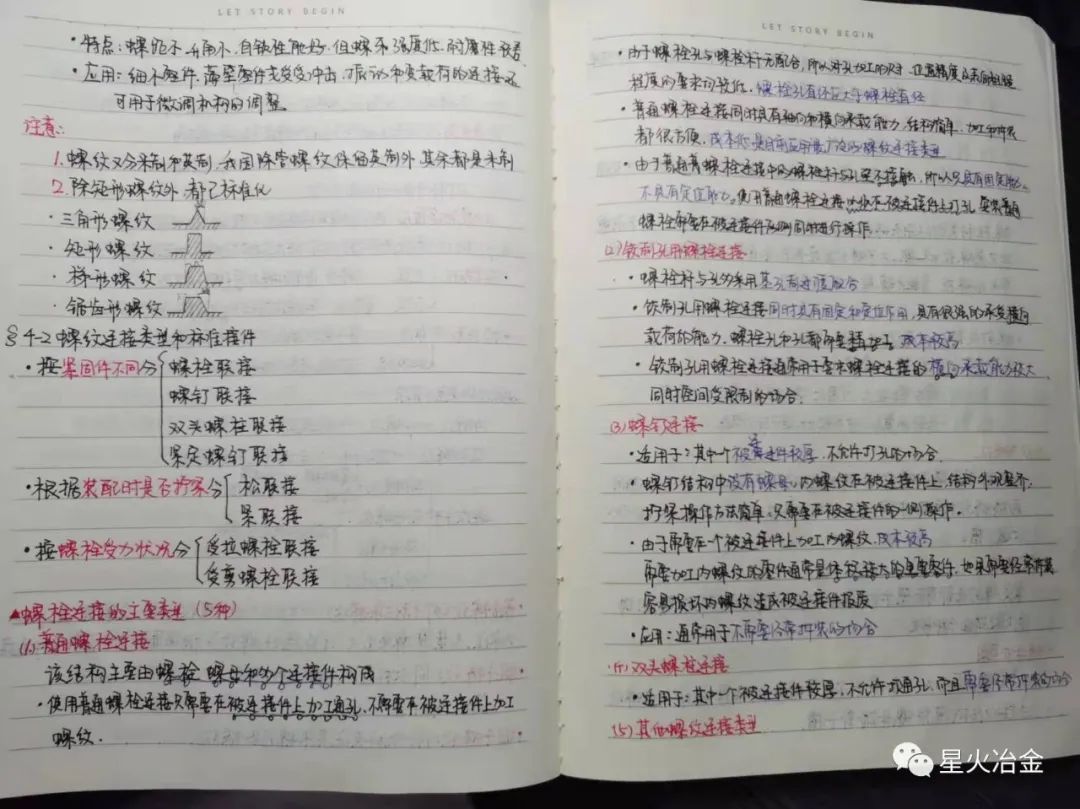 LET STORY BEGIN
·特点:螺距小、升角小、自锁性能好,但螺牙强度低,耐磨性较差
·应用:细小零件、薄壁零件或受冲击、
可用于微调机构的调整
注意:
1. 螺纹又分米制和英制,我国除管螺纹保留英制外,其余都是米制
2. 除矩形螺纹外,都已标准化
·三角形螺纹
·矩形螺纹
·梯形螺纹
·锯齿形螺纹
§4-2 螺纹连接类型和标准接件
·按紧固件不同分
螺栓联接
螺钉联接
双头螺柱联接
紧定螺钉联接
·根据装配时是否拧紧分
松联接
紧联接
·按螺栓受力状况分
受拉螺栓联接
受剪螺栓联接
▲螺栓连接的主要类型(5种)
(1)普通螺栓连接
该结构主要由螺栓、螺母和两个连接件构成
·使用普通螺栓连接只需要在被连接件上加工通孔,不需要在被连接件上加工
螺纹.
LET STORY BEGIN
·由于螺栓孔与螺栓杆无配合,所以对孔加工的尺寸、位置精度及表面粗糙
程度的要求均较低,螺栓孔直径应大于螺栓直径
·普通螺栓连接同时具有轴向和横向承载能力,结构简单,加工和拆装
都很方便,成本低,是目前应用最广泛的螺纹连接类型
·由于普通螺栓连接中的螺栓杆与孔是不接触,所以只具有固定能力,
不具有定位能力。使用普通螺栓连接必须在被连接件上打孔,安装普通
螺栓需要在被连接件两侧同时进行操作
(2)铰制孔用螺栓连接
·螺栓杆与孔多采用基孔制过渡配合
·铰制孔用螺栓连接同时具有固定和定位作用,具有很强的承受横向
载荷的能力。螺栓孔和孔都需要精加工,成本较高
·铰制孔用螺栓连接通常用于要求螺栓连接的横向承载能力较大
同时空间受限制的场合.
(3)螺钉连接
·适用于:其中一个被连件较厚,不允许打孔的场合
·螺钉结构中没有螺母,内螺纹在被连接件上,结构外观整齐,
拧紧操作方法简单,只需要在被连接件的一侧操作。
·由于需要在一个被连接件上加工内螺纹,成本较高
需要加工内螺纹的零件通常是体积较大的重要零件,如果需要经常拆装
容易损坏内螺纹造成被连接件报废
·应用:通常用于不需要经常拆装的场合
(4)双头螺柱连接
·适用于:其中一个被连接件较厚,不允许打通孔,而且需要经常拆装的场合
(5)其他螺纹连接类型
星火冶金